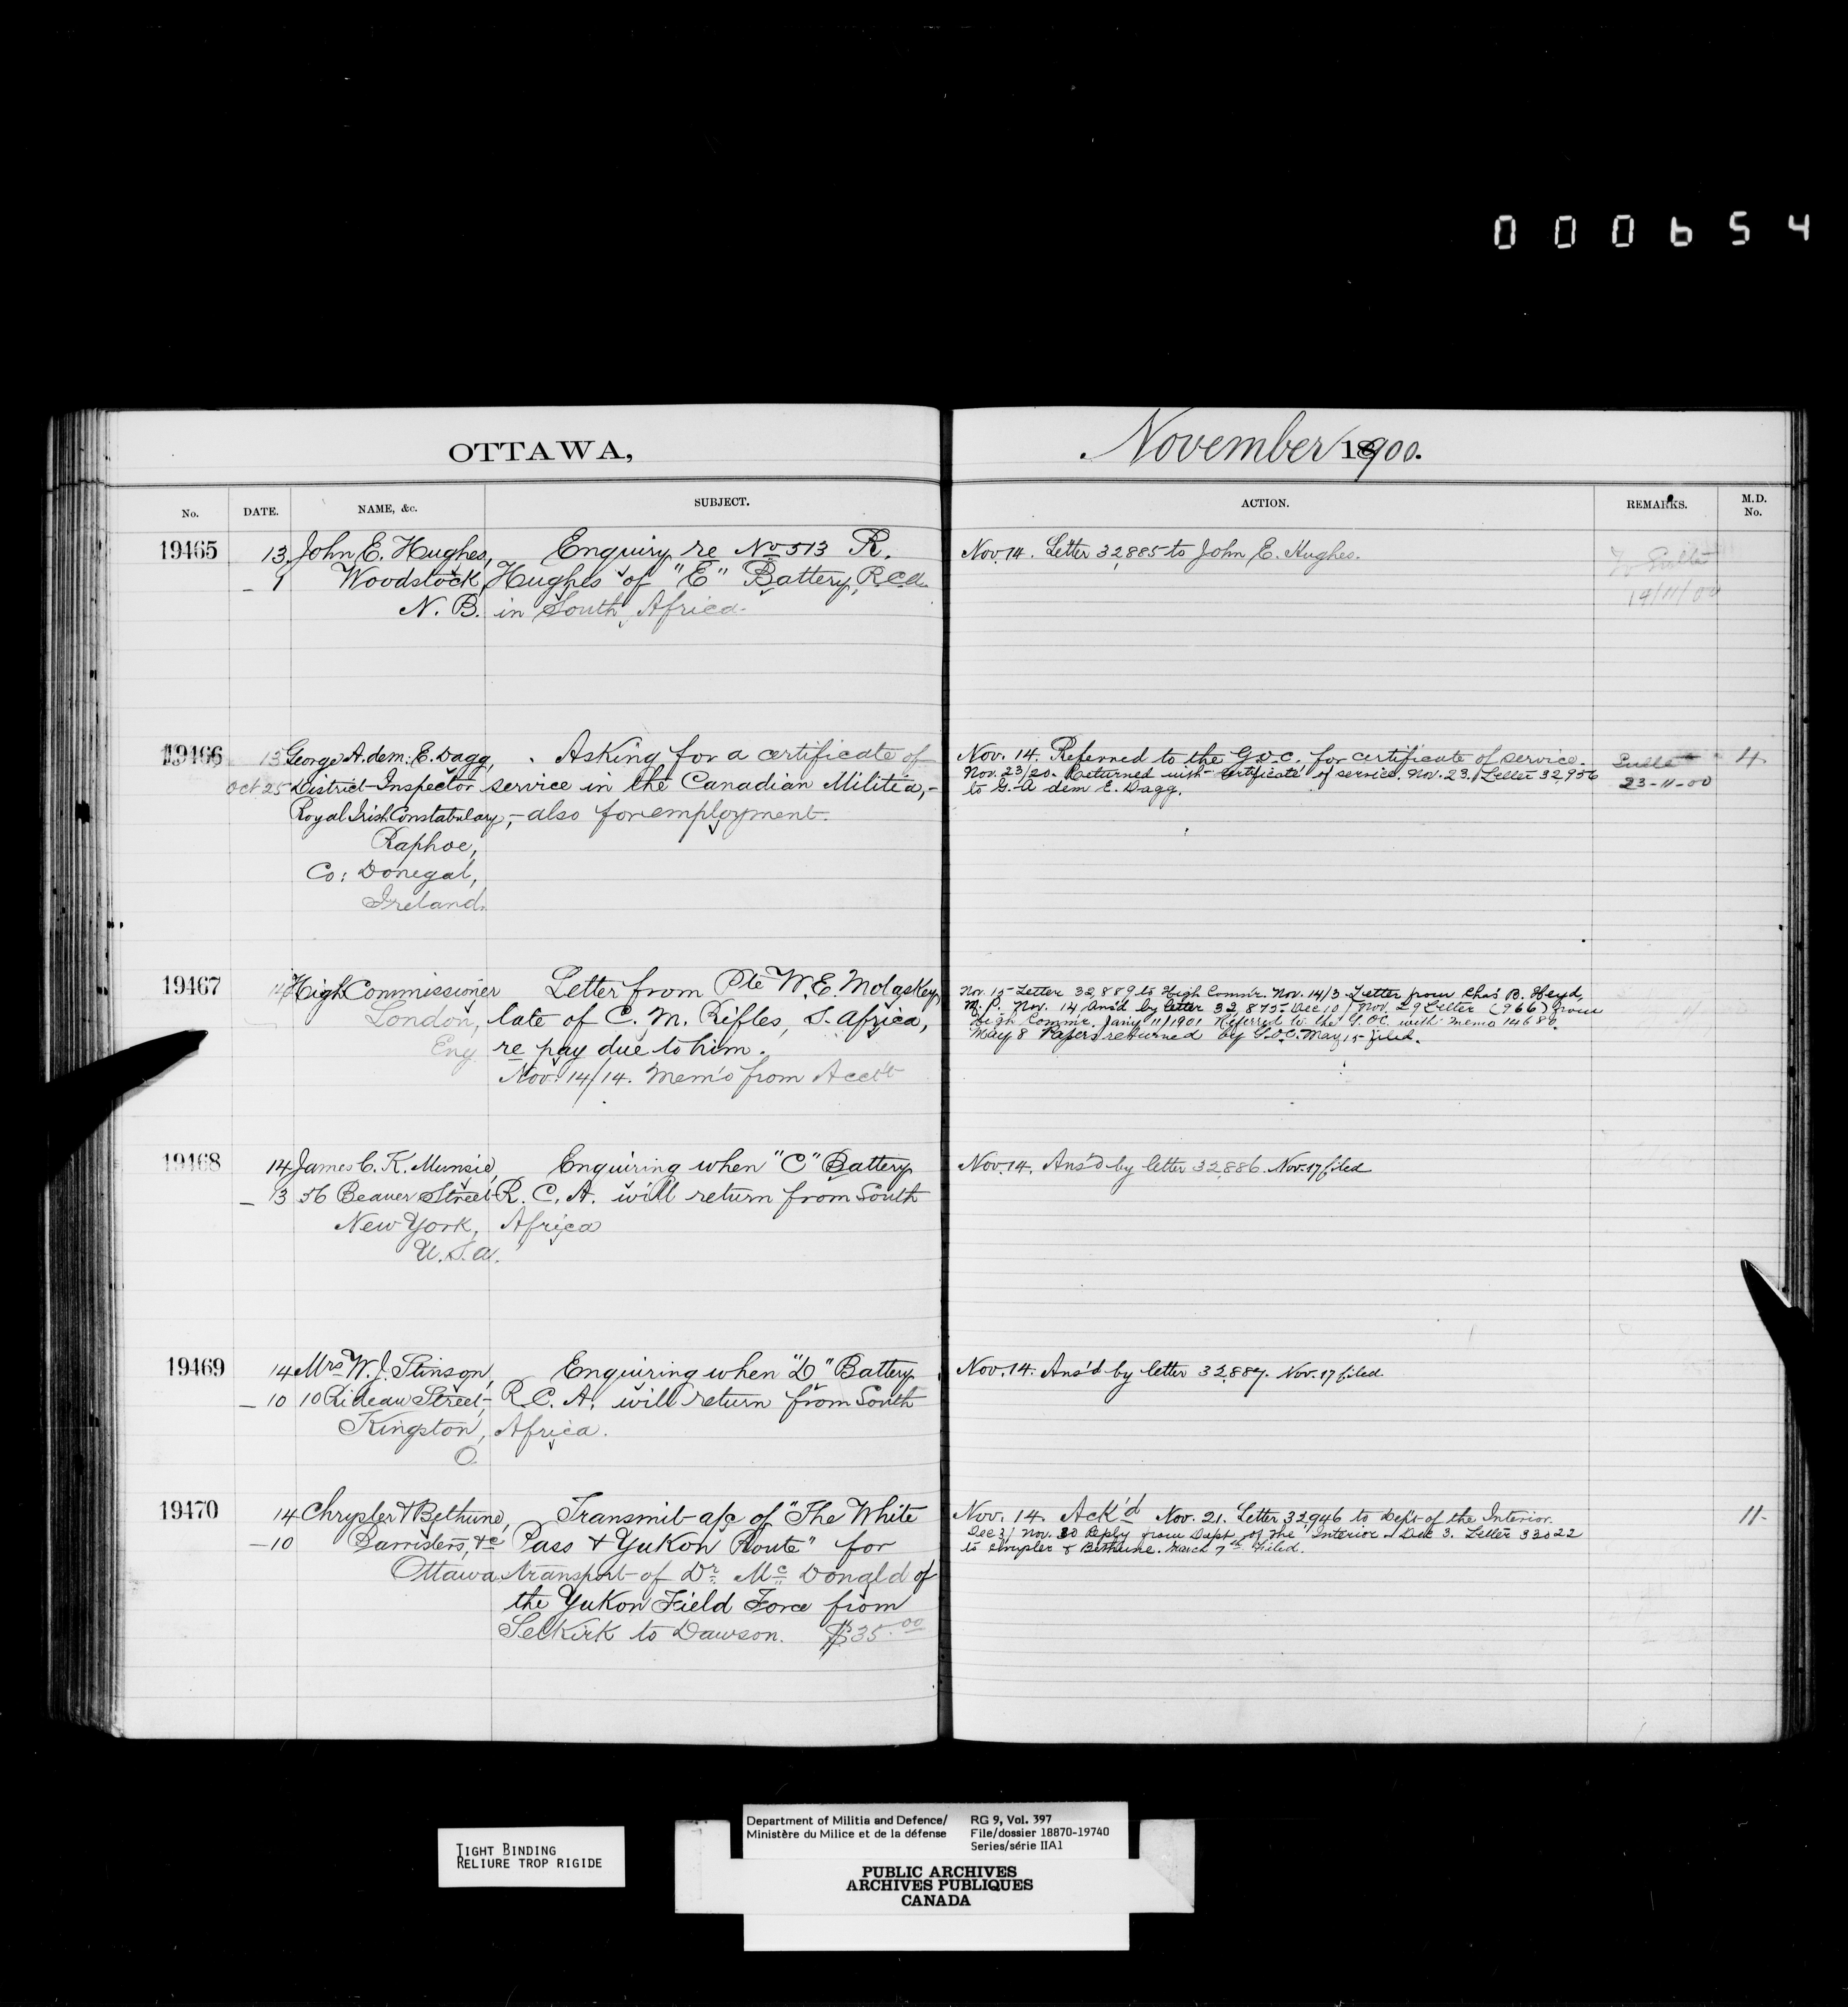 000654
OTTAWA,
November 1900.
No. DATE. NAME, &c. SUBJECT. ACTION. REMARKS. M.D. No.
19465
13 John E. Hughes,
— 9 Woodstock,
N. B.
Enquiry re No 513 R.
Hughes of "E" Battery, R.C.A.
in South Africa.
Nov. 14. Letter 32,885 to John E. Hughes.
14/11/00
19466
13 George A. dem. E. Dagg,
Oct 25 District-Inspector
Royal Irish Constabulary,
Raphoe,
Co: Donegal,
Ireland.
Asking for a certificate of
service in the Canadian Militia,-
- also for employment.
Nov. 14. Referred to the G.O.C. for certificate of service.
Nov. 23/20. Returned with certificate of service. Nov. 23. Letter 32,956
to G. A dem E. Dagg.
23-11-00
4.
19467
14 High Commissioner
London,
Eng.
Letter from Pte W. E. Molaskey,
late of C. M. Rifles, S. Africa,
re pay due to him.
Nov. 14/14. Mem'o from Acc't
Nov. 15 Letter 32,889 to High Comm'r. Nov. 14/3 Letter from Chas B. Heyd,
M.P. Nov. 14 Ans'd by letter 32,875 Dec 10/Nov. 29 Letter (966) from
High Comm'r. Jany 11/1901 Referred to the G.O.C. with memo 14689.
May 8 Papers returned by G.O.C. May 15 filed.
19468
14 James C. K. Munsie,
— 13 56 Beaver Street
New York,
U.S.A.
Enquiring when "C" Battery
R. C. A. will return from South
Africa
Nov. 14. Ans'd by letter 32,886. Nov. 17 filed
19469
14 Mrs W. J. Stinson,
— 10 10 Rideau Street,
Kingston,
O.
Enquiring when "D" Battery
R. C. A. will return from South
Africa.
Nov. 14. Ans'd by letter 32,887. Nov. 17 filed
19470
14 Chrysler & Bethune,
— 10 Barristers, &c
Ottawa
Transmit a/c of "The White
Pass & Yukon Route" for
transport of Dr. Mc Donald of
the Yukon Field Force from
Selkirk to Dawson. $35.00
Nov. 14. Ack'd Nov. 21. Letter 32,946 to Dep't of the Interior.
Dec 3/Nov. 30 Reply from Dept of the Interior. Dec 3. Letter 33022
to Chrysler & Bethune. March 7th Filed.
11.
TIGHT BINDING
RELIURE TROP RIGIDE
Department of Militia and Defence/
Ministère du Milice et de la défense
RG 9, Vol. 397
File/dossier 18870-19740
Series/série IIA1
PUBLIC ARCHIVES
ARCHIVES PUBLIQUES
CANADA